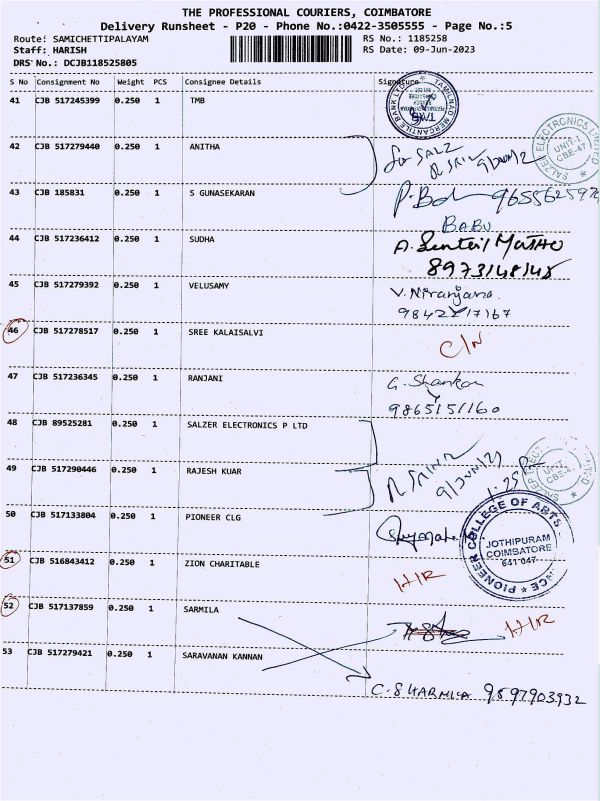 THE PROFESSIONAL COURIERS, COIMBATORE
Delivery Runsheet - P20 - Phone No.:0422-3505555 - Page No.:5
Route: SAMICHETTIPALAYAM RS No.: 1185258
Staff: HARISH RS Date: 09-Jun-2023
DRS No.: DCJB118525805
S No Consignment No Weight PCS Consignee Details Signature
41 CJB 517245399 0.250 1 TMB
TAMILNAD MERCANTILE BANK LTD
42 CJB 517279440 0.250 1 ANITHA
for SALZ
SALZER ELECTRONICS LIMITED UNIT-I CBE-47
43 CJB 185831 0.250 1 S GUNASEKARAN
BABU
44 CJB 517236412 0.250 1 SUDHA
45 CJB 517279392 0.250 1 VELUSAMY V. Niranjana
46 CJB 517278517 0.250 1 SREE KALAISALVI C/N
47 CJB 517236345 0.250 1 RANJANI G. Shankar
9865151160
48 CJB 89525281 0.250 1 SALZER ELECTRONICS P LTD
49 CJB 517290446 0.250 1 RAJESH KUAR
50 CJB 517133804 0.250 1 PIONEER CLG
PIONEER COLLEGE OF ARTS
JOTHIPURAM
COIMBATORE
641 047
51 CJB 516843412 0.250 1 ZION CHARITABLE H/R
52 CJB 517137859 0.250 1 SARMILA H/R
53 CJB 517279421 0.250 1 SARAVANAN KANNAN
C. SHARMILA 9597903932